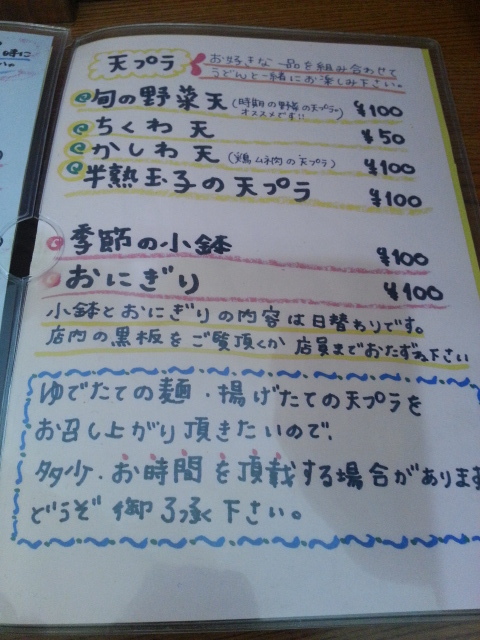 天プラ
お好きな一品を組み合わせて
うどんと一緒にお楽しみ下さい。
旬の野菜天 (時期の野菜の天プラ) オススメです!! ¥100
ちくわ天 ¥50
かしわ天 (鶏ムネ肉の天プラ) ¥100
半熟玉子の天プラ ¥100
季節の小鉢 ¥100
おにぎり ¥100
小鉢とおにぎりの内容は日替わりです。
店内の黒板をご覧頂くか 店員までおたずね下さい
ゆでたての麺・揚げたての天プラを
お召し上がり頂きたいので、
多少・お時間を頂戴する場合があります
どうぞ御了承下さい。